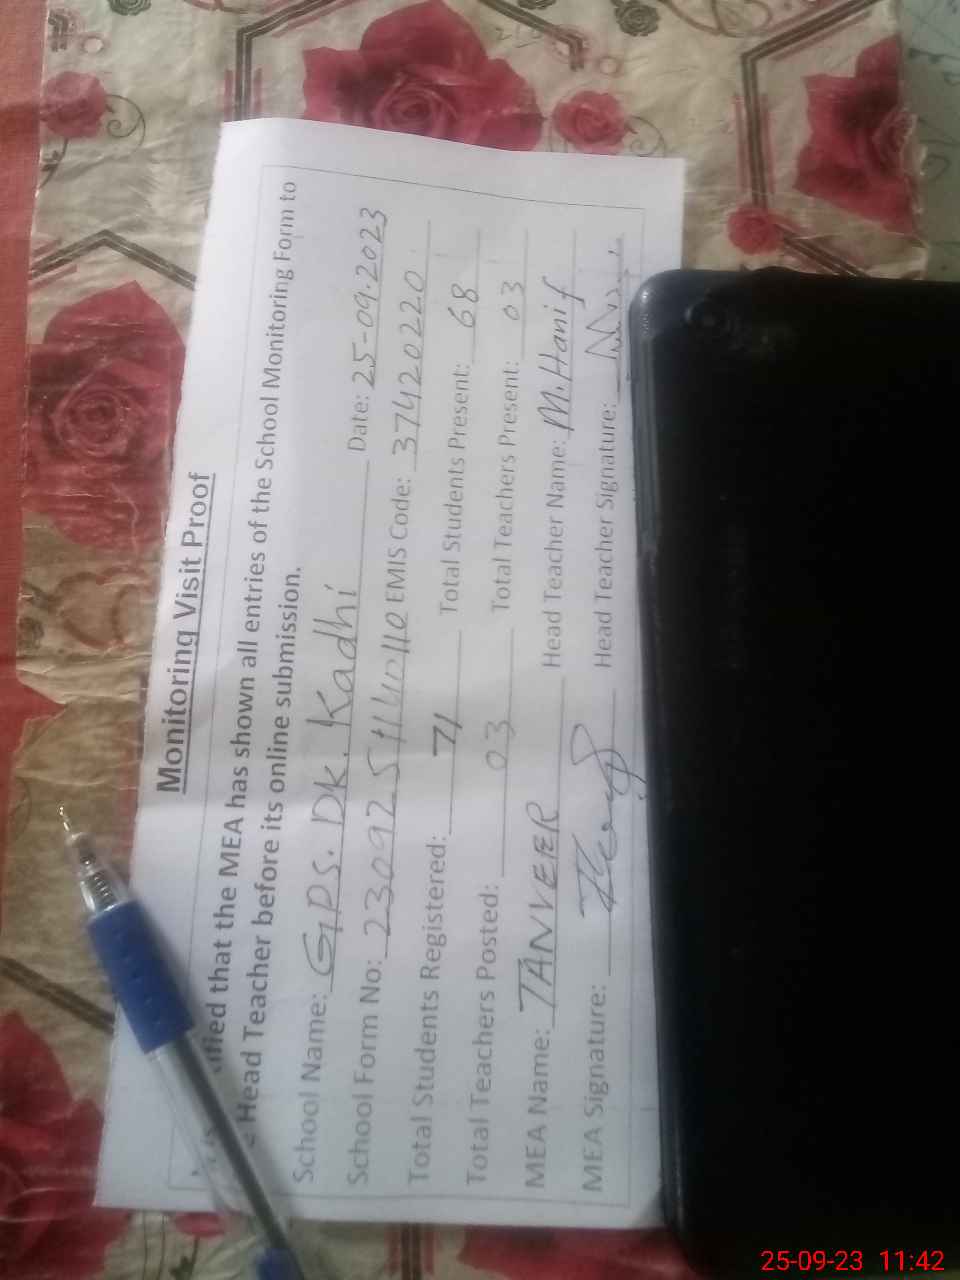 Monitoring Visit Proof
that the MEA has shown all entries of the School Monitoring Form to
Head Teacher before its online submission.
School Name: GPS. DK. Kadhi Date: 25-09.2023
School Form No: EMIS Code: 37420220
Total Students Registered: 71 Total Students Present: 68
Total Teachers Posted: 03 Total Teachers Present: 03
MEA Name: TANVEER Head Teacher Name: M. Hanif
MEA Signature: Head Teacher Signature:
25-09-23 11:42